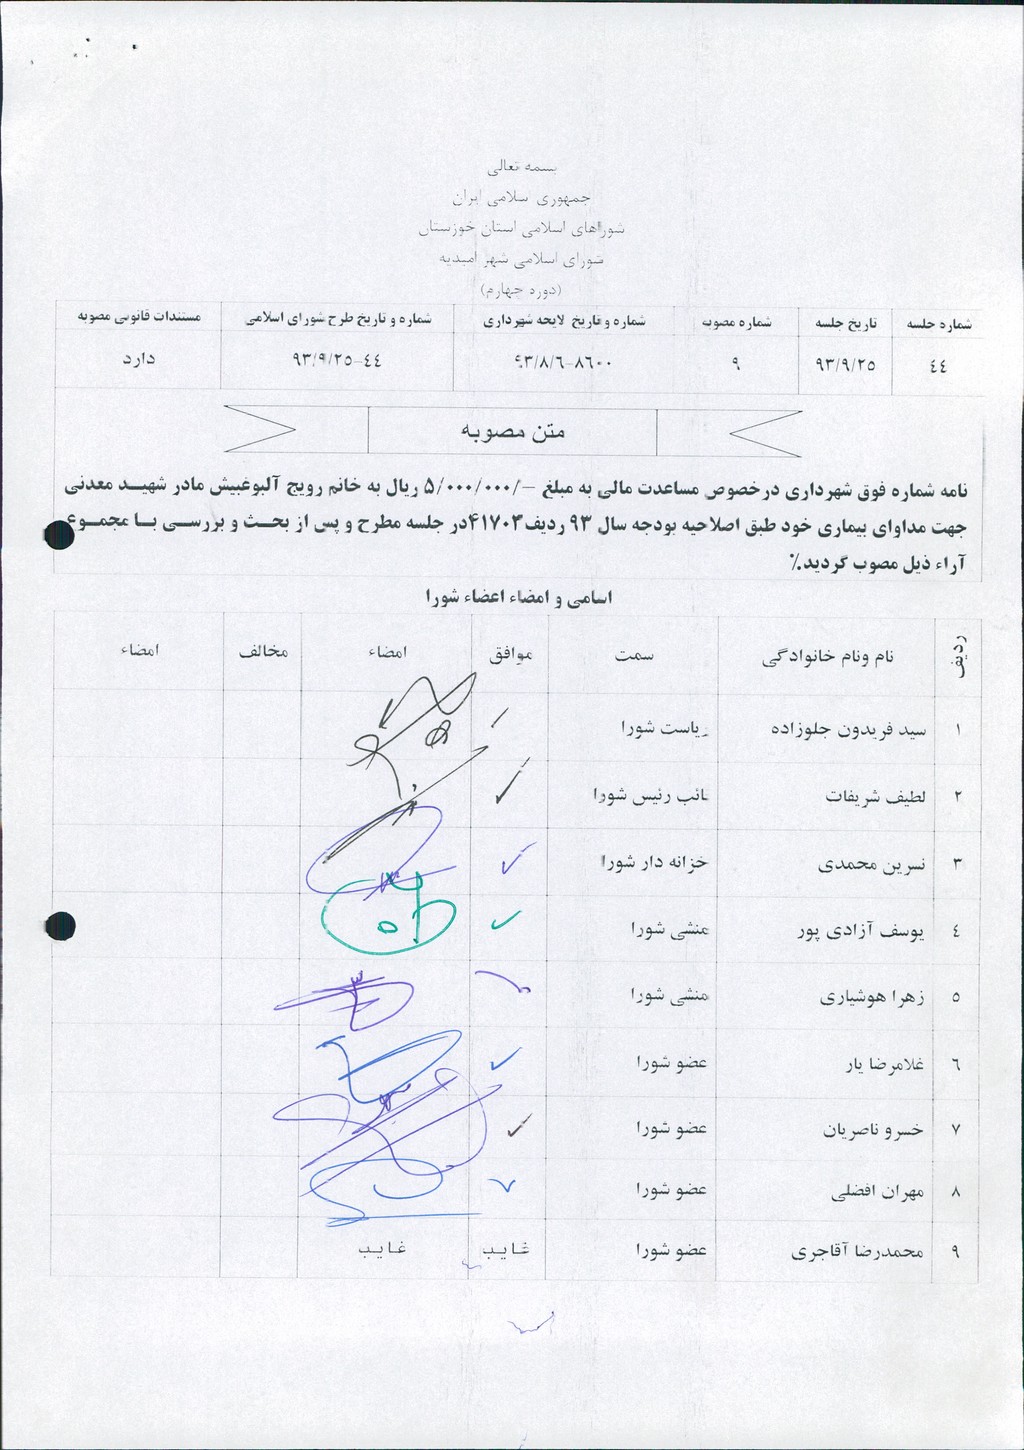 بسمه تعالی
جمهوری اسلامی ایران
شوراهای اسلامی استان خوزستان
شورای اسلامی شهر امیدیه
(دوره چهارم)
شماره جلسه تاریخ جلسه شماره مصوبه شماره و تاریخ لایحه شهرداری شماره و تاریخ طرح شورای اسلامی مستندات قانونی مصوبه
٤٤ ۹۳/۹/۲۵ ۹ ۹۳/۸/۶-۸۶۰۰ ۹۳/۹/۲۵-٤٤ دارد
متن مصوبه
نامه شماره فوق شهرداری درخصوص مساعدت مالی به مبلغ -/۵/۰۰۰/۰۰۰ ریال به خانم رویح آلبوغبیش مادر شهید معدنی
جهت مداوای بیماری خود طبق اصلاحیه بودجه سال ۹۳ ردیف ۴۱۷۰۳در جلسه مطرح و پس از بحث و بررسی با مجموع
آراء ذیل مصوب گردید.٪
اسامی و امضاء اعضاء شورا
ردیف نام ونام خانوادگی سمت موافق امضاء مخالف امضاء
۱ سید فریدون جلوزاده ریاست شورا
۲ لطیف شریفات نائب رئیس شورا
۳ نسرین محمدی خزانه دار شورا
٤ یوسف آزادی پور منشی شورا
۵ زهرا هوشیاری منشی شورا
۶ غلامرضا یار عضو شورا
۷ خسرو ناصریان عضو شورا
۸ مهران افضلی عضو شورا
۹ محمدرضا آقاجری عضو شورا غایب غایب